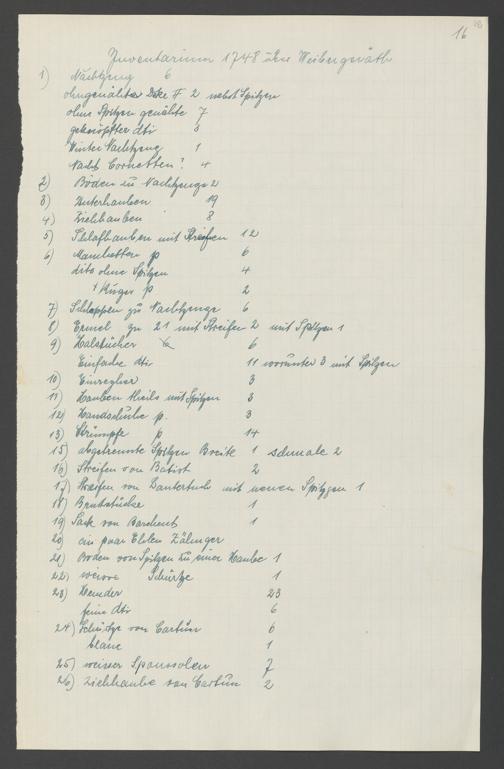 16
Inventarium 1748 über Weibergeräth
1) Nachtzeug 6
ohngenähter Deke # 2 nebst Spitzen
ohne Spitzen genähte 7
geknöpfter dti 3
Winter Nachtzeug 1
Nacht Cornetten? 4
2) Böden zu Nachtzeuge 2
3) Unterhauben 19
4) Ziehhauben 8
5) Schlafhauben mit Streifen 12
6) Manchetten p 6
dito ohne Spitzen 4
p 2
7) Schleppen zu Nachtzeuge 6
8) Ermel zu 21 mit Streifen 2 mit Spitzen 1
9) Halstücher 6
Einfache dti 11 worunter 3 mit Spitzen
10) 3
11) Hauben theils mit Spitzen 3
12) Handschuhe p. 3
13) Strümpfe p 14
15) abgetrennte Spitzen Breite 1 schmale 2
16) Streifen von Batist 2
17) Streifen von mit neuen Spitzen 1
18) Bruststücke 1
19) Sack von Barchent 1
20) ein paar Ehlen
21) Boden von Spitzen zu einer Haube 1
22) weisse Schürtze 1
23) Hemder 23
feine dti 6
24) Schürtze von Cartun 6
blaue 1
25) weisser 7
26) Ziehhaube von Cartun 2